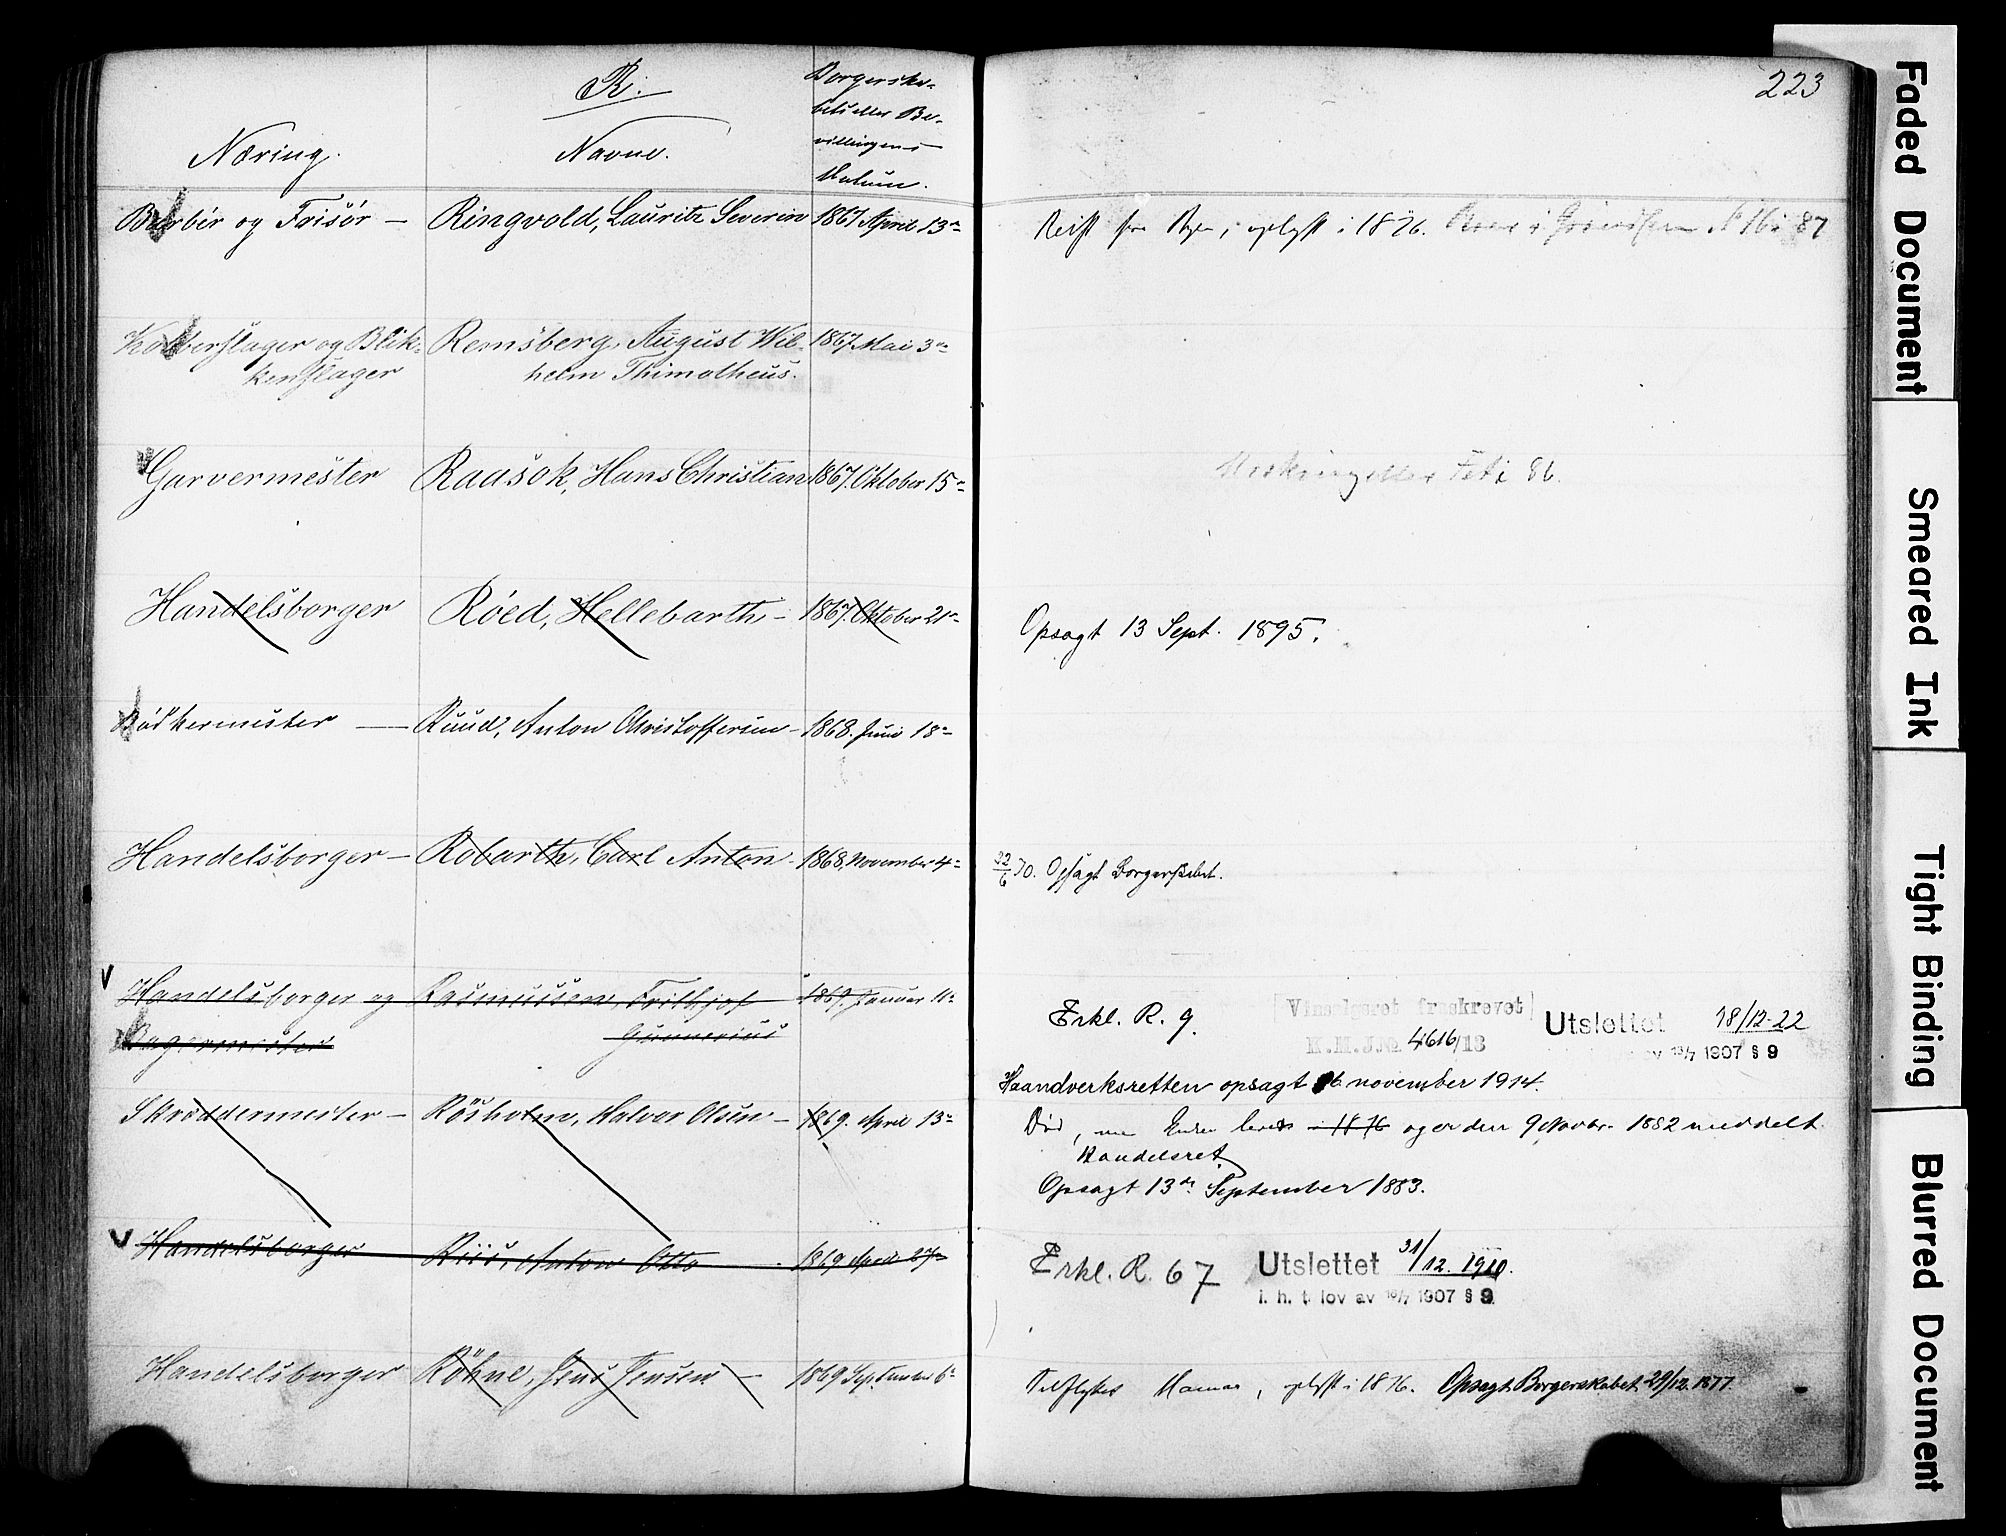 R.
223
Næring.
Navne.
Borgerska-
bets eller Be-
villingens
Datum.
Barbér og Frisør — Ringvold, Lauritz Severin 1867 April 13de
Reist fra Byen, oplyst i 1876.
87
Kobberslager og Blik- Remsberg, August Wil- 1867 Mai 3die
kenslager helm Thimotheus.
Garvermester Raasok, Hans Christian 1867. Oktober 15de
86.
Handelsborger Röed, Hellebarth, – 1867. Oktober 21de
Opsagt 13 Sept. 1895.
Bødkermester — Ruud, Anton Christoffersen – 1868. Juni 18de
Handelsborger – Robarth, Carl Anton – 1868, November 4de
22/6 70. Opsagt Borgerskabet.
V Handelsborger og Rasmussen, Frithjof 1869. Januar 11te
Bagermester Gunnerius
Erkl. R. 9.
Vinsalgsret fraskrevet
K.H.J.№ 4616/13
Utslettet 18/12 22
av 19/7 1907 § 9
Haandverksretten opsagt 6 november 1914.
Skræddermester – Rösholm, Halvor Olsen – 1869. April 13de
Död, og er den 9 Novbr. 1882 meddelt
Handelsret
Opsagt 13de September 1883.
V Handelsborger Riis, Anton Otto 1869 April 27de
Erkl. R. 67
Utslettet 31/12. 1910.
i. h. t. lov av 19/7 1907 § 9
Handelsborger Röhne, Jens Jensen – 1869 September 6te
Tilflyttet Hamar, oplyst i 1876. Opsagt Borgerskabet 21/12. 1877.
Faded Document
Smeared Ink
Tight Binding
Blurred Document